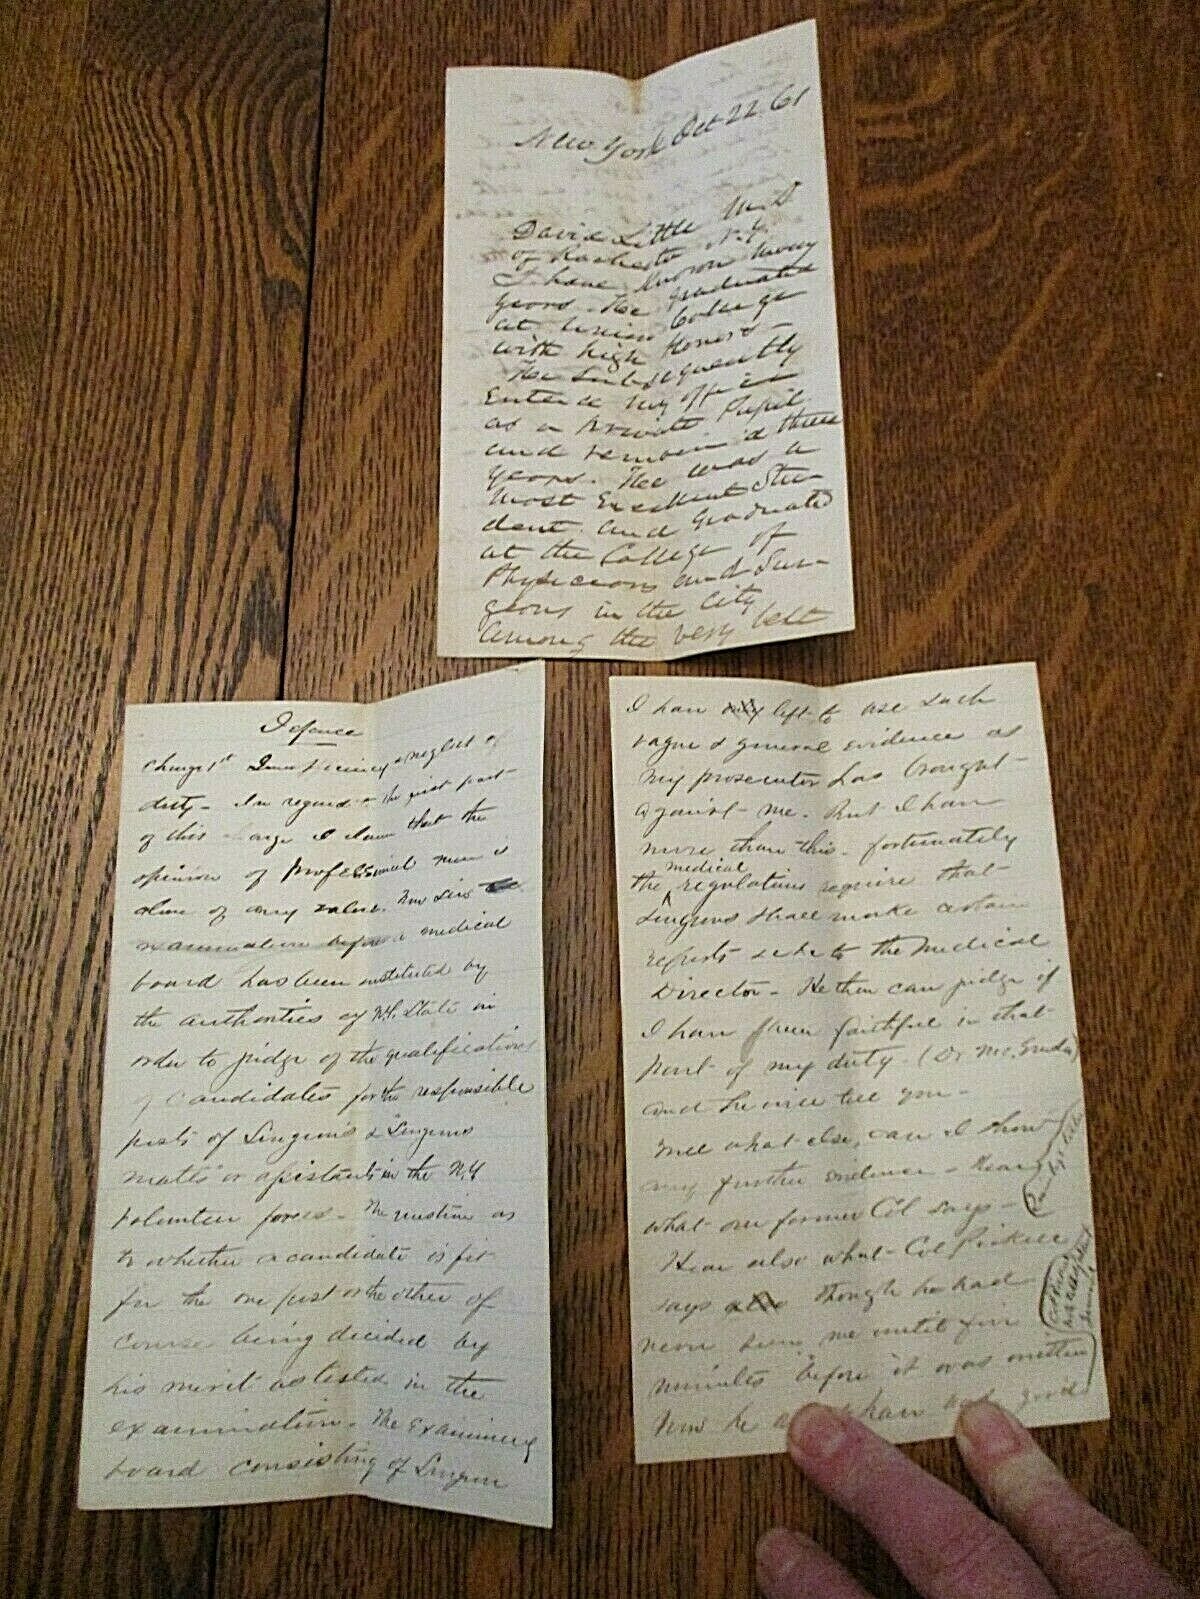 New York Oct 22. 61
David Little M.D
of Rochester N.Y.
I have known many
years. He graduated
at Union College
with high Honors -
He Subsequently
Entered my office
as a private Pupil
and remained three
years. He was a
Most Excellent Stu
dent. and Graduated
at the College of
Physicians and Sur
geons in the City
among the very best
Defence
Charge 1st Inefficiency & neglect of
duty - In regard to the first part
of this charge I claim that the
opinion of professional men is
alone of any value.
examination before a medical
board has been instituted by
the authorities of N.Y. State in
order to judge of the qualifications
of candidates for the responsible
posts of Surgeons & Surgeons
mates or assistants in the N.Y
Volunteer forces - The question as
to whether a candidate is fit
for the one post or the other of
course being decided by
his merit as tested in the
examination. The Examining
board consisting of Surgeon
I have only left to use such
vague & general evidence as
my prosecutor has brought
against me. But I have
more than this - fortunately
the medical regulations require that
Surgeons shall make certain
reports &c &c to the Medical
Director - He then can judge if
I have been faithful in that
part of my duty
and he will tell you -
Well what else, can I show
any further evidence - Hear
what our former Col says -
Hear also what Col
says also though he had
never seen me until five
minutes before it was written
Now he have had good